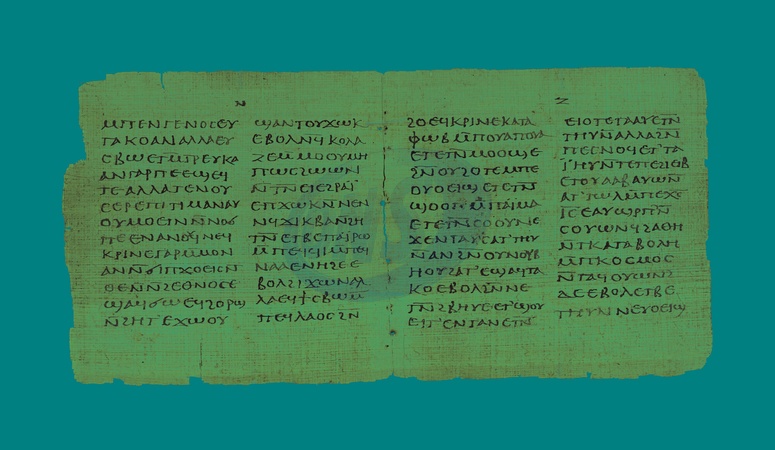 ⲛ̅
ⲙⲡⲉⲛⲅⲉⲛⲟⲥⲉⲩ
ⲧⲁⲕⲟⲁⲛⲁⲗⲗⲁⲉⲩ
ⲥⲃⲱⲉⲧⲙⲧⲣⲉⲩⲕⲁ
ⲁⲛⲅⲁⲣⲡⲉⲉϣⲉϥ
ⲧⲉⲁⲗⲗⲁⲅⲉⲛⲟⲩ
ⲥⲉⲣⲉⲡⲓⲧⲓⲙⲁⲛⲁⲩ
ⲟⲩⲙⲟⲉⲓⲧⲛ̅ⲛⲟϭ
ⲡⲉⲉⲛⲁⲛⲟⲩϥⲛⲉϥ
ⲕⲣⲓⲛⲉⲅⲁⲣⲙⲙⲟⲛ
ⲁⲛⲛ̅ϭⲓⲡϫⲟⲉⲓⲥⲛ
ⲑⲉⲛⲛ̅ϩⲉⲑⲛⲟⲥⲉ
ϣⲁϥϭⲱⲉϥϩⲟⲣϣ
ⲛ̅ϩⲏⲧⲉϫⲱⲟⲩ
ϣⲁⲛⲧⲟⲩϫⲱⲕ
ⲉⲃⲟⲗⲛϥ̅ⲕⲟⲗⲁ
ⲍⲉⲙⲙⲟⲟⲩⲙⲏ
ⲡⲱⲥϩⲱⲱⲛ
ⲛ̅ⲧⲛ̅ⲉⲓⲉϩⲣⲁⲓ̈
ⲉⲡϫⲱⲕⲛ̅ⲛⲉⲛ
ⲛϥϫⲓⲕⲃⲁⲛ̅ϩⲏ
ⲧⲛ̅ⲉⲧⲃⲉⲡⲁⲓ̈ⲣⲱ
ⲙⲡⲉϥϥⲓⲙⲡⲉϥ
ⲛⲁⲁⲉⲛⲏϩⲉⲉ
ⲃⲟⲗϩⲓϫⲱⲛⲁⲗ
ⲗⲁⲉϥϯⲥⲃⲱⲙ
ⲡⲉϥⲗⲁⲟⲥϩⲛ
ⲍ̅
ϩⲟⲉϥⲕⲣⲓⲛⲉⲕⲁⲧⲁ
ⲫⲱⲃⲙ̅ⲡⲟⲩⲁⲡⲟⲩⲁ
ⲉⲧⲉⲧⲛ̅ⲙⲟⲟϣⲉ
ϩⲛⲟⲩϩⲟⲧⲉⲙⲡⲉ
ⲟⲩⲟⲉⲓϣⲉⲧⲉⲧⲛ̅
ϣⲟⲟⲡⲙ̅ⲡⲁⲓ̈ⲙⲁ
ⲉⲧⲉⲧⲛ̅ⲥⲟⲟⲩⲛⲉ
ϫⲉⲛⲧⲁⲩⲥⲁⲧⲧⲏⲩ
ⲛ̅ⲁⲛϩⲛⲟⲩⲛⲟⲩⲃ
ⲏⲟⲩϩⲁⲧⲉϣⲁϥⲧⲁ
ⲕⲟⲉⲃⲟⲗϩⲛ̅ⲛⲉ
ⲧⲛ̅ϩⲃⲏⲩⲉⲉⲧϣⲟⲩ
ⲉⲓⲧⲉⲛⲧⲁⲛⲉⲧⲛ̅
ⲉⲓⲟⲧⲉⲧⲁⲁⲩⲉⲧⲛ̅
ⲧⲏⲩⲛ̅ⲁⲗⲗⲁϩⲛ
ⲡⲉⲥⲛⲟϥⲉⲧⲧⲁ
ⲓ̈ⲏⲩⲛⲧⲉⲡⲉϩⲓⲉⲓⲃ
ⲉⲧⲟⲩⲁⲁⲃⲁⲩⲱⲛ
ⲁⲧⲧⲱⲗⲙⲡⲉⲭ̅ⲥ̅
ⲓ̅ⲥ̅ⲉⲁⲩϣⲣⲡⲛ̅
ⲥⲟⲩⲱⲛϥϩⲁⲑⲏ
ⲛ̅ⲧⲕⲁⲧⲁⲃⲟⲗⲏ
ⲙ̅ⲡⲕⲟⲥⲙⲟⲥ
ⲛ̅ⲧⲁϥⲟⲩⲱⲛϩ
ⲇⲉⲉⲃⲟⲗⲉⲧⲃⲉ
ⲧⲏⲩⲛⲛⲉⲩⲟⲉⲓϣ